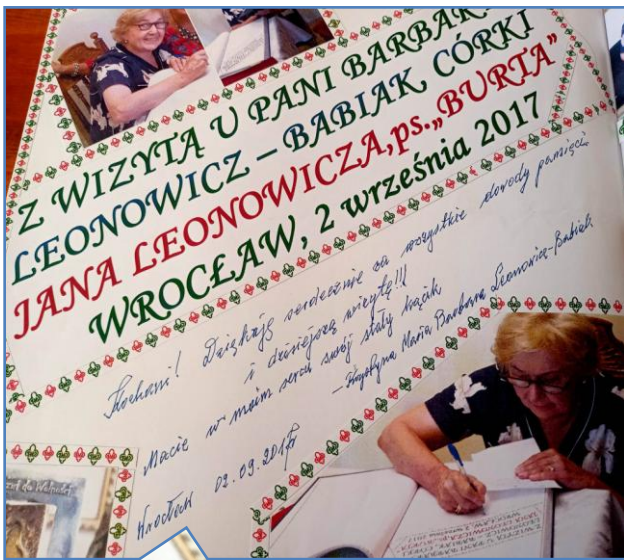 Z WIZYTĄ U PANI BARBARY
LEONOWICZ – BABIAK, CÓRKI
JANA LEONOWICZA, ps. „BURTA”
WROCŁAW, 2 września 2017
Kochani! Dziękuję serdecznie za wszystkie dowody pamięci
i dzisiejszą wizytę!!!
Macie w moim sercu swój stały kącik
– Krystyna Maria Barbara Leonowicz-Babiak
Wrocław 02.09.2017r